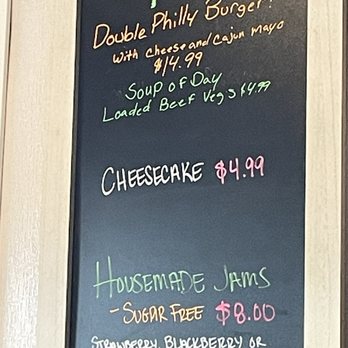 Double Philly Burger!
With Cheese and Cajun Mayo
$14.99
Soup of Day
Loaded Beef Veg $4.99
CHEESECAKE $4.99
HOUSEMADE JAMS
- SUGAR FREE $8.00
STRAWBERRY, BLACKBERRY OR